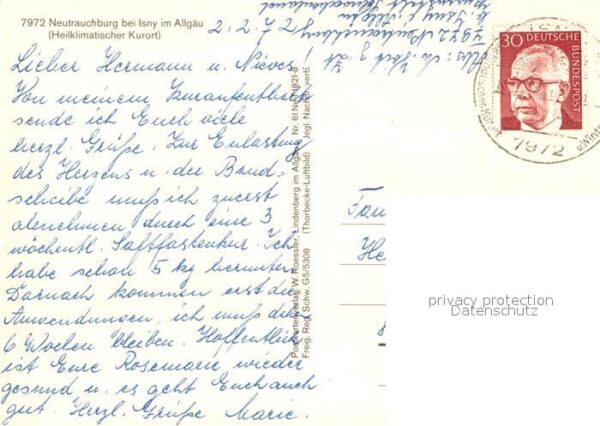 7972 Neutrauchburg bei Isny im Allgäu
(Heilklimatischer Kurort)
2. 2. 72
Lieber Hermann u. Nieves!
Von meinem Kuraufenthalt
sende ich Euch viele
herzl. Grüße. Zur Entlastung
des Herzens u. der Band-
scheibe muß ich zuerst
abnehmen durch eine 3
wöchentl. Saftfastenkur. Ich
habe schon 5 kg herunter.
Darnach kommen erst die
Anwendungen, ich muß
6 Wochen bleiben. Hoffentlich
ist Eure Rosemarie wieder
gesund u. es geht Euch auch
gut. Herzl. Grüße Marie.
Abs:
7972 Neutrauchburg
b. Isny i. Allgäu
Postkartenverlag W. Roessler, Lindenberg im Allgäu
Freig. Reg. Schw. G5/5308 (Thorbecke-Luftbild)
30 DEUTSCHE
BUNDESPOST
7972
Fam
He
privacy protection
Datenschutz